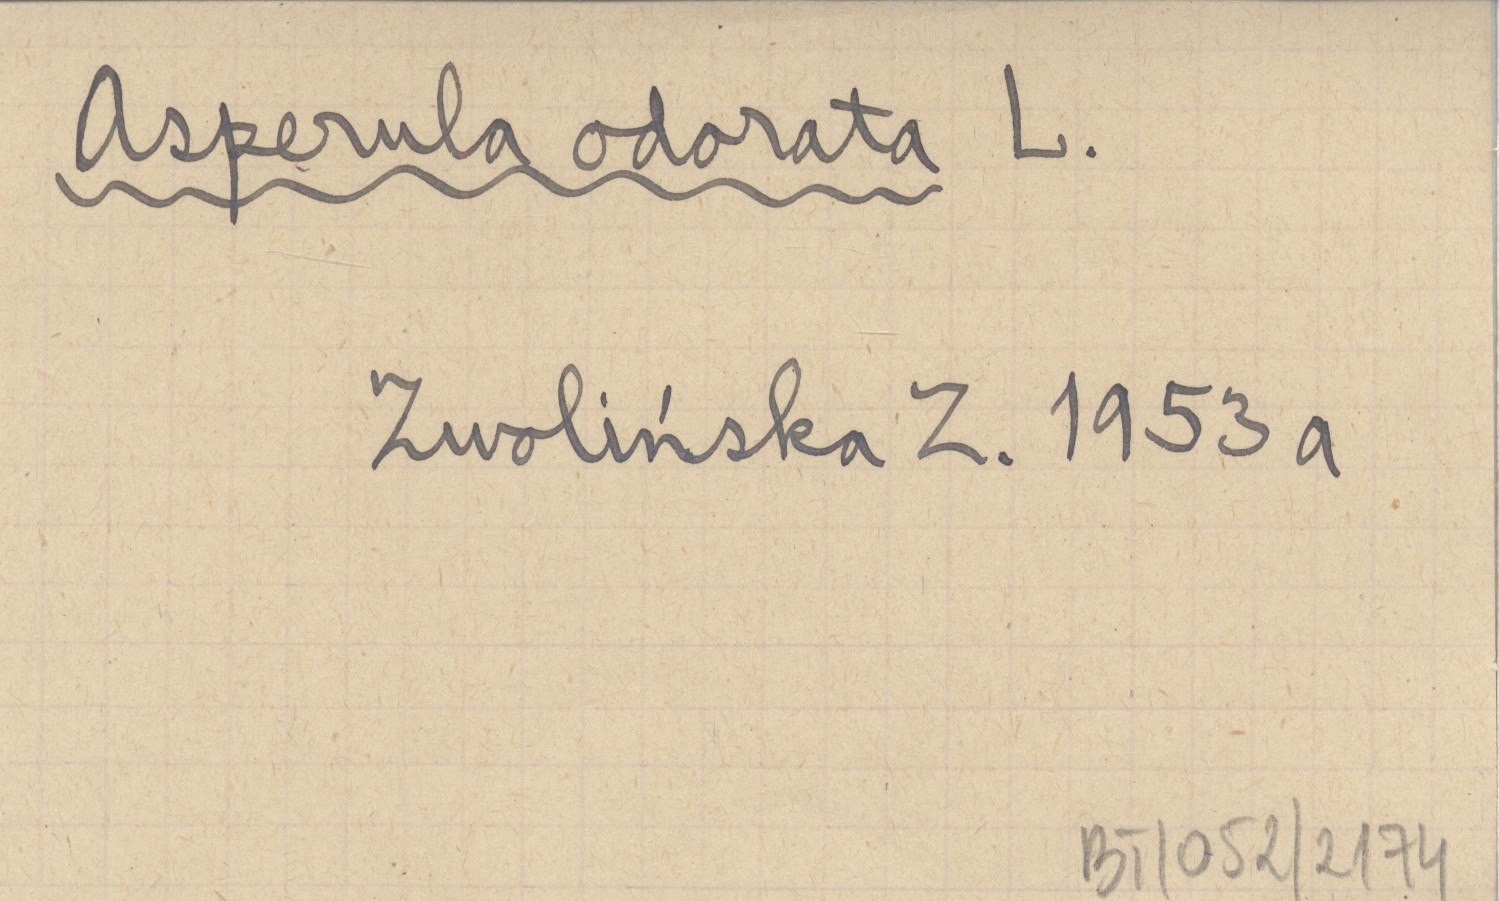 Asperula odorata L.
Zwolińska Z. 1953 a
BT/052/2174